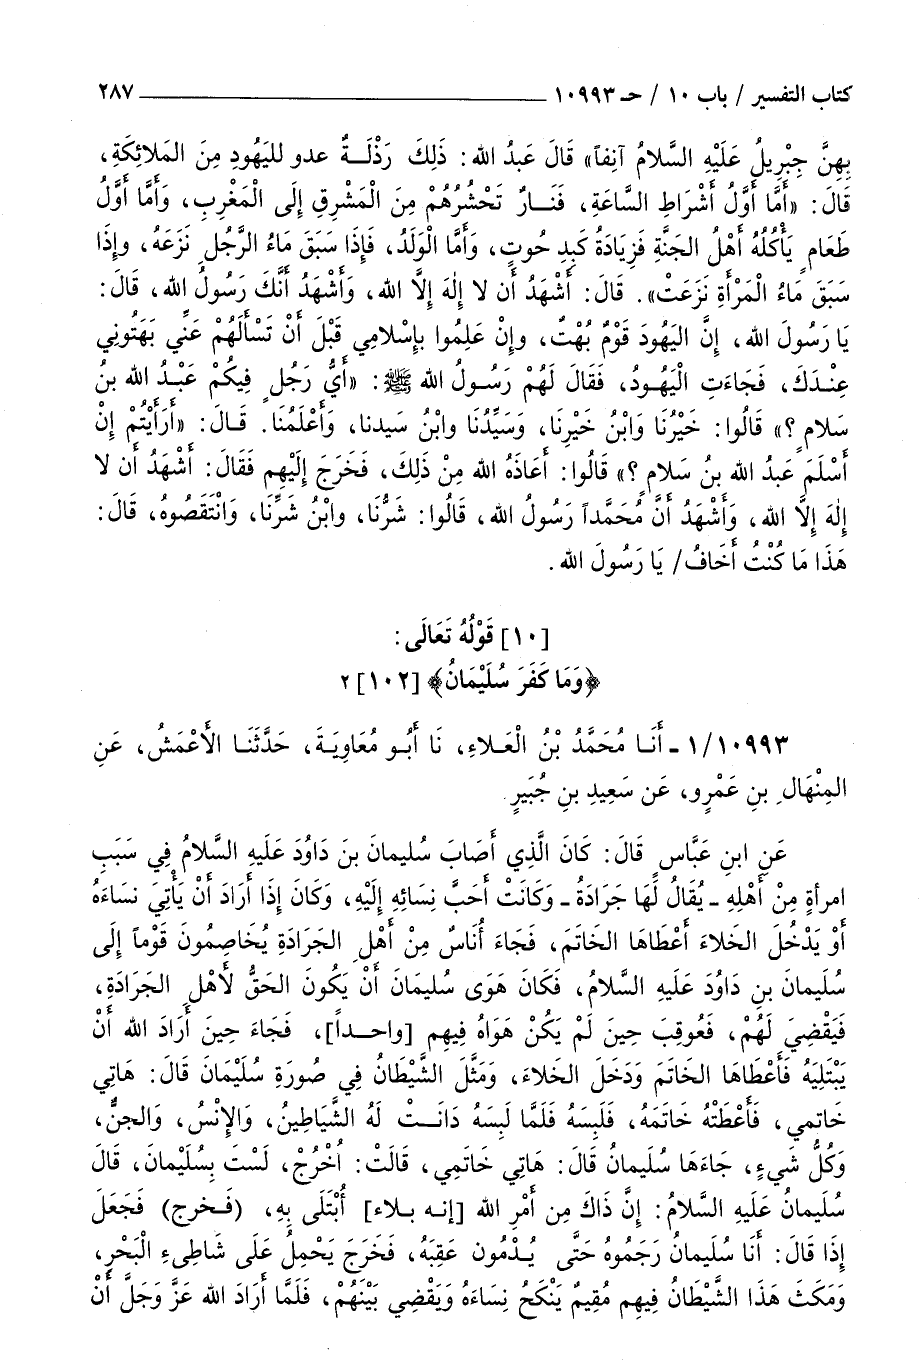 كتاب التفسير / باب ١٠ / حـ ١٠٩٩٣ ــــــــــ ٢٨٧
بِهِنَّ جِبْرِيلُ عَلَيْهِ السَّلامُ آنِفاً» قَالَ عَبدُ الله: ذَلِكَ رَذْلَـةٌ عدو لليَهُودِ مِنَ المَلائِكَةِ،
قَالَ: «أَمَّا أَوَّلُ أَشْرَاطِ السَّاعَةِ، فَنَـارٌ تَحْشُرُهُمْ مِنَ الْمَشْرِقِ إِلَى الْمَغْرِبِ، وَأَمَّا أَوَّلُ
طَعَامٍ يَأْكُلُهُ أَهْلُ الجَنَّةِ فَزِيَادَةُ كَبِدِ حُوتٍ، وَأَمَّا الْوَلَدُ، فَإِذَا سَبَقَ مَاءُ الرَّجُلِ نَزَعَهُ، وإِذَا
سَبَقَ مَاءُ الْمَرْأَةِ نَزَعَتْ». قَالَ: أَشْهَدُ أَن لا إِلٰهَ إِلَّا الله، وَأَشْهَدُ أَنَّكَ رَسُولُ الله، قَالَ:
يَا رَسُولَ الله، إِنَّ اليَهُودَ قَوْمٌ بُهْتٌ، وإِنْ عَلِمُوا بِإِسْلامِي قَبْلَ أَنْ تَسْأَلَهُمْ عَنِّي بَهَتُونِي
عِنْدَكَ، فَجَاءَتِ الْيَهُودُ، فَقَالَ لَهُمْ رَسُولُ الله ﷺ: «أَيُّ رَجُلٍ فِيكُمْ عَبْدُ الله بنُ
سَلامٍ؟» قَالُوا: خَيْرُنَا وَابْنُ خَيْرِنَا، وَسَيِّدُنَا وابْنُ سَيدنا، وَأَعْلَمُنَا. قَـالَ: «أَرَأَيْتُمْ إِنْ
أَسْلَمَ عَبدُ الله بنُ سَلامٍ؟» قَالُوا: أَعَاذَهُ الله مِنْ ذَلِكَ، فَخَرَجَ إِلَيْهِم فَقَالَ: أَشْهَدُ أَن لا
إِلٰهَ إِلَّا الله، وَأَشْهَدُ أَنَّ مُحَمَّداً رَسُولُ الله، قَالُوا: شَرُّنَا، وابْنُ شَرِّنَا، وَانْتَقَصُوهُ، قَالَ:
هَذَا مَا كُنْتُ أَخَافُ/ يَا رَسُولَ الله.
[١٠] قَوْلُهُ تَعَالَى:
﴿وَمَا كَفَرَ سُلَيْمَانُ﴾ [١٠٢] ٢
١/١٠٩٩٣ ـ أَنَـا مُحَمَّدُ بْنُ الْعَـلاءِ، نَا أَبُـو مُعَاوِيَـةَ، حَدَّثَنَـا الأَعْمَشُ، عَنِ
المِنْهَالِ بنِ عَمْرٍو، عَن سَعِيدِ بنِ جُبَيرٍ
عَنِ ابنِ عَبَّاسٍ قَالَ: كَانَ الَّذِي أَصَابَ سُليمانَ بنَ دَاوُدَ عَلَيهِ السَّلامُ فِي سَبَبِ
امرأةٍ مِنْ أَهْلِهِ ـ يُقَالُ لَهَا جَرَادَةُ ـ وَكَانَتْ أَحَبَّ نِسَائِهِ إِلَيْهِ، وَكَانَ إِذَا أَرَادَ أَنْ يَأْتِيَ نِسَاءَهُ
أَوْ يَدْخُلَ الخَلاءَ أَعْطَاهَا الخَاتَمَ، فَجَاءَ أُنَاسٌ مِنْ أَهْلِ الجَرَادَةِ يُخَاصِمُونَ قَوْماً إِلَى
سُلَيمانَ بنِ دَاوُدَ عَلَيهِ السَّلامُ، فَكَانَ هَوَى سُليمانَ أَنْ يَكُونَ الحَقُّ لأَهْلِ الجَرَادَةِ،
فَيَقْضِيَ لَهُمْ، فَعُوقِبَ حِينَ لَمْ يَكُنْ هَوَاهُ فِيهِم [واحـداً]، فَجَاءَ حِينَ أَرَادَ الله أَنْ
يَبْتَلِيَهُ فَأَعْطَاهَا الخَاتَمَ وَدَخَلَ الخَلاءَ، وَمَثَّلَ الشَّيْطَانُ فِي صُورَةِ سُلَيْمَانَ قَالَ: هَاتِي
خَاتمي، فَأَعْطَتْهُ خَاتَمَهُ، فَلَبِسَهُ فَلَمَّا لَبِسَهُ دَانَـتْ لَهُ الشَّيَاطِينُ، وَالإِنْسُ، وَالجنُّ،
وَكُلُّ شَيءٍ، جَاءَهَا سُلَيمانُ قَالَ: هَاتِي خَاتَمِي، قَالَتْ: اُخْرُجْ، لَسْتَ بِسُلَيْمَانَ، قَالَ
سُلَيمانُ عَلَيهِ السَّلامُ: إِنَّ ذَاكَ مِن أَمْرِ الله [إنـه بـلاء] أُبْتَلَى بِهِ، (فَـخرج) فَجَعَلَ
إِذَا قَالَ: أَنَا سُليمانُ رَجَمُوهُ حَتَّى يُـدْمُون عَقِبَهُ، فَخَرَجَ يَحْمِلُ عَلَى شَاطِىءِ الْبَحْرِ،
وَمَكَثَ هَذَا الشَّيْطَانُ فِيهِم مُقِيمٌ يَنْكَحُ نِسَاءَهُ وَيَقْضِي بَيْنَهُمْ، فَلَمَّا أَرَادَ الله عَزَّ وَجَلَّ أَنْ